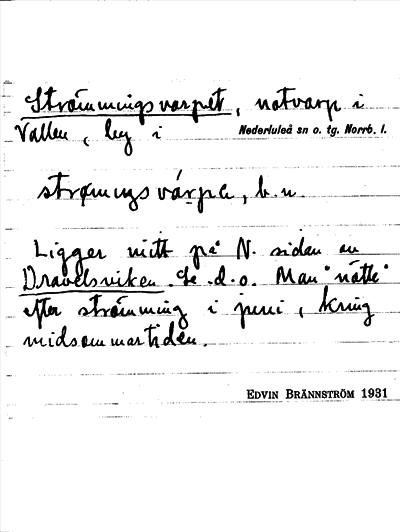 Strömmingsvarpet, notvarp i
Vallen, by i Nederluleå sn o. tg. Norrb. l.
strømıŋsvárpe, b.n.
Ligger mitt på N. sidan av
Dravelsviken. Se d.o. Man "nätte"
efter strömming i juni, kring
midsommartiden.
EDVIN BRÄNNSTRÖM 1931